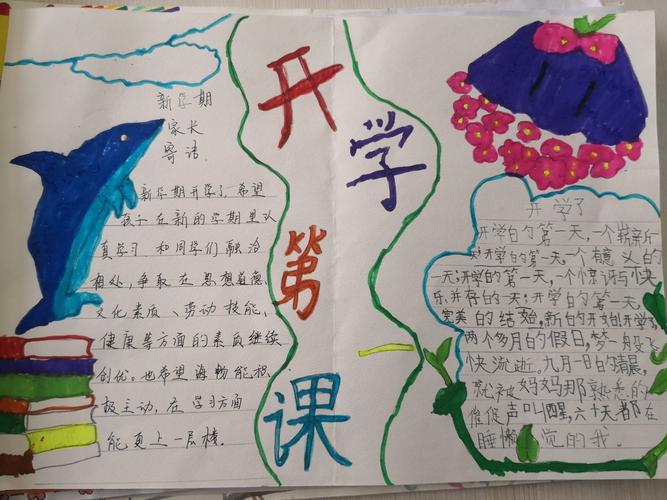 开学第一课
新学期
家长
寄语
新学期开学了,希望
孩子在新的学期里认
真学习 和同学们融洽
相处,争取在思想道德、
文化素质、劳动技能、
健康等方面的素质继续
创优。也希望海畅能积
极主动,在学习方面
能更上一层楼.
开学了
开学的第一天,一个崭新所
开学的第一天,一个有意义的
一天;开学的第一天,一个惊讶与快
乐,并存的一天;开学的第一天,
完美的结始,新的开始!开学
两个多月的假日,梦一般飞
快流逝。九月一日的清晨,
就被妈妈那熟悉的
催促声叫醒,六十天都在
睡懒觉的我。